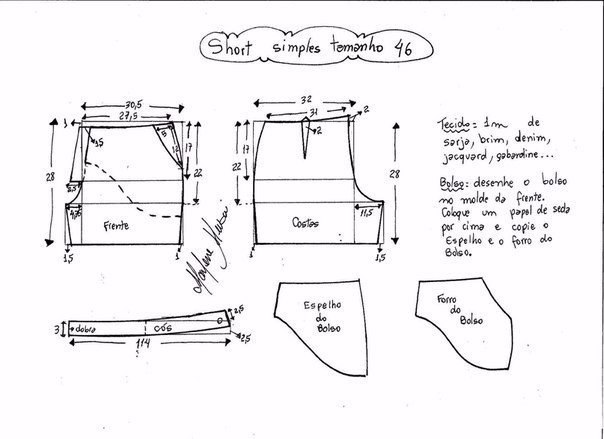 Short simples tamanho 46
30,5
27,5
1
3,5
5
12
17
22
28
2,5
4,25
Frente
1,5
1
32
31
2
2
17
22
28
11,5
Costas
1
1,5
Tecido: 1m de
sarja, brim, denim,
jacquard, gabardine...
Bolso: desenhe o bolso
no molde da frente.
Coloque um papel de seda
por cima e copie o
Espelho e o forro do
Bolso.
3
dobra
cós
2,5
2,5
114
Espelho
do
Bolso
Forro
do
Bolso